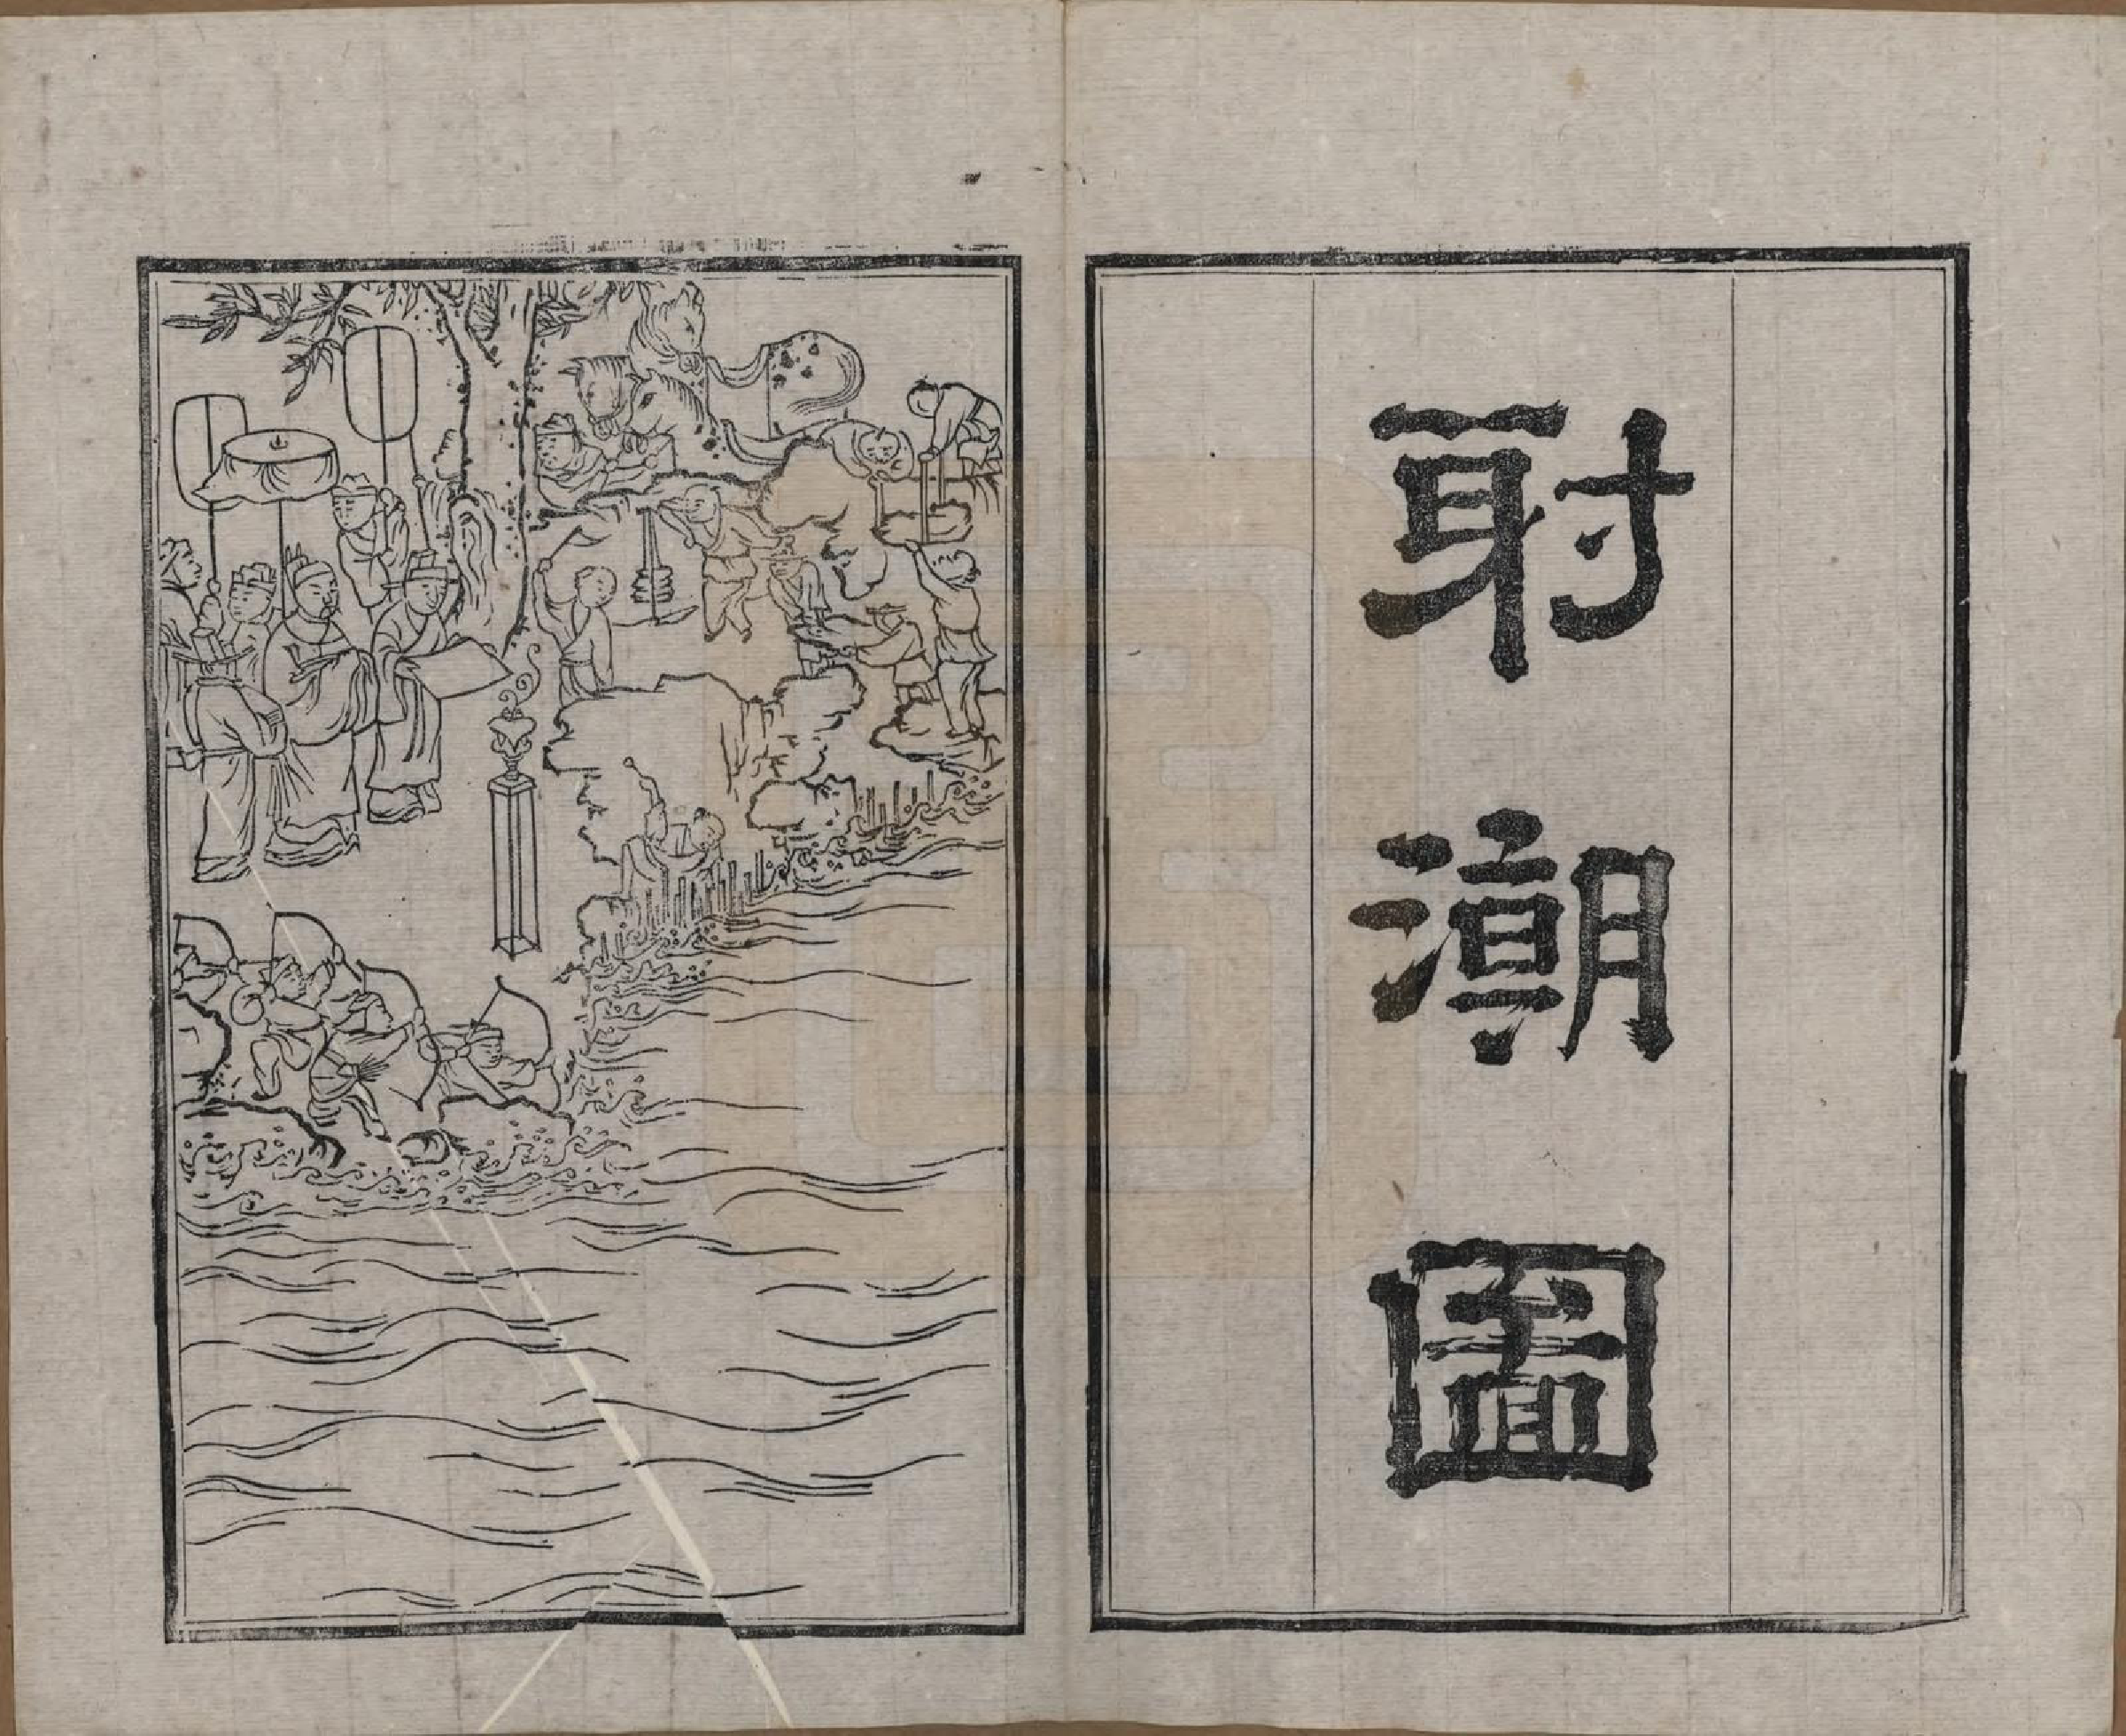 射潮圖